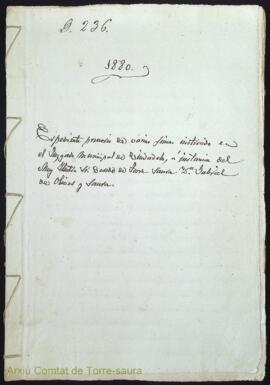 D. 236.
1880.
Espediente posesorio de varias fincas instruido en
el Juzgado Municipal de Ciudadela, á instancia del
Muy Iltre Sr. Conde de Torre Saura Dn. Gabriel
de Olives y Saura.
Arxiu Comtat de Torre-saura